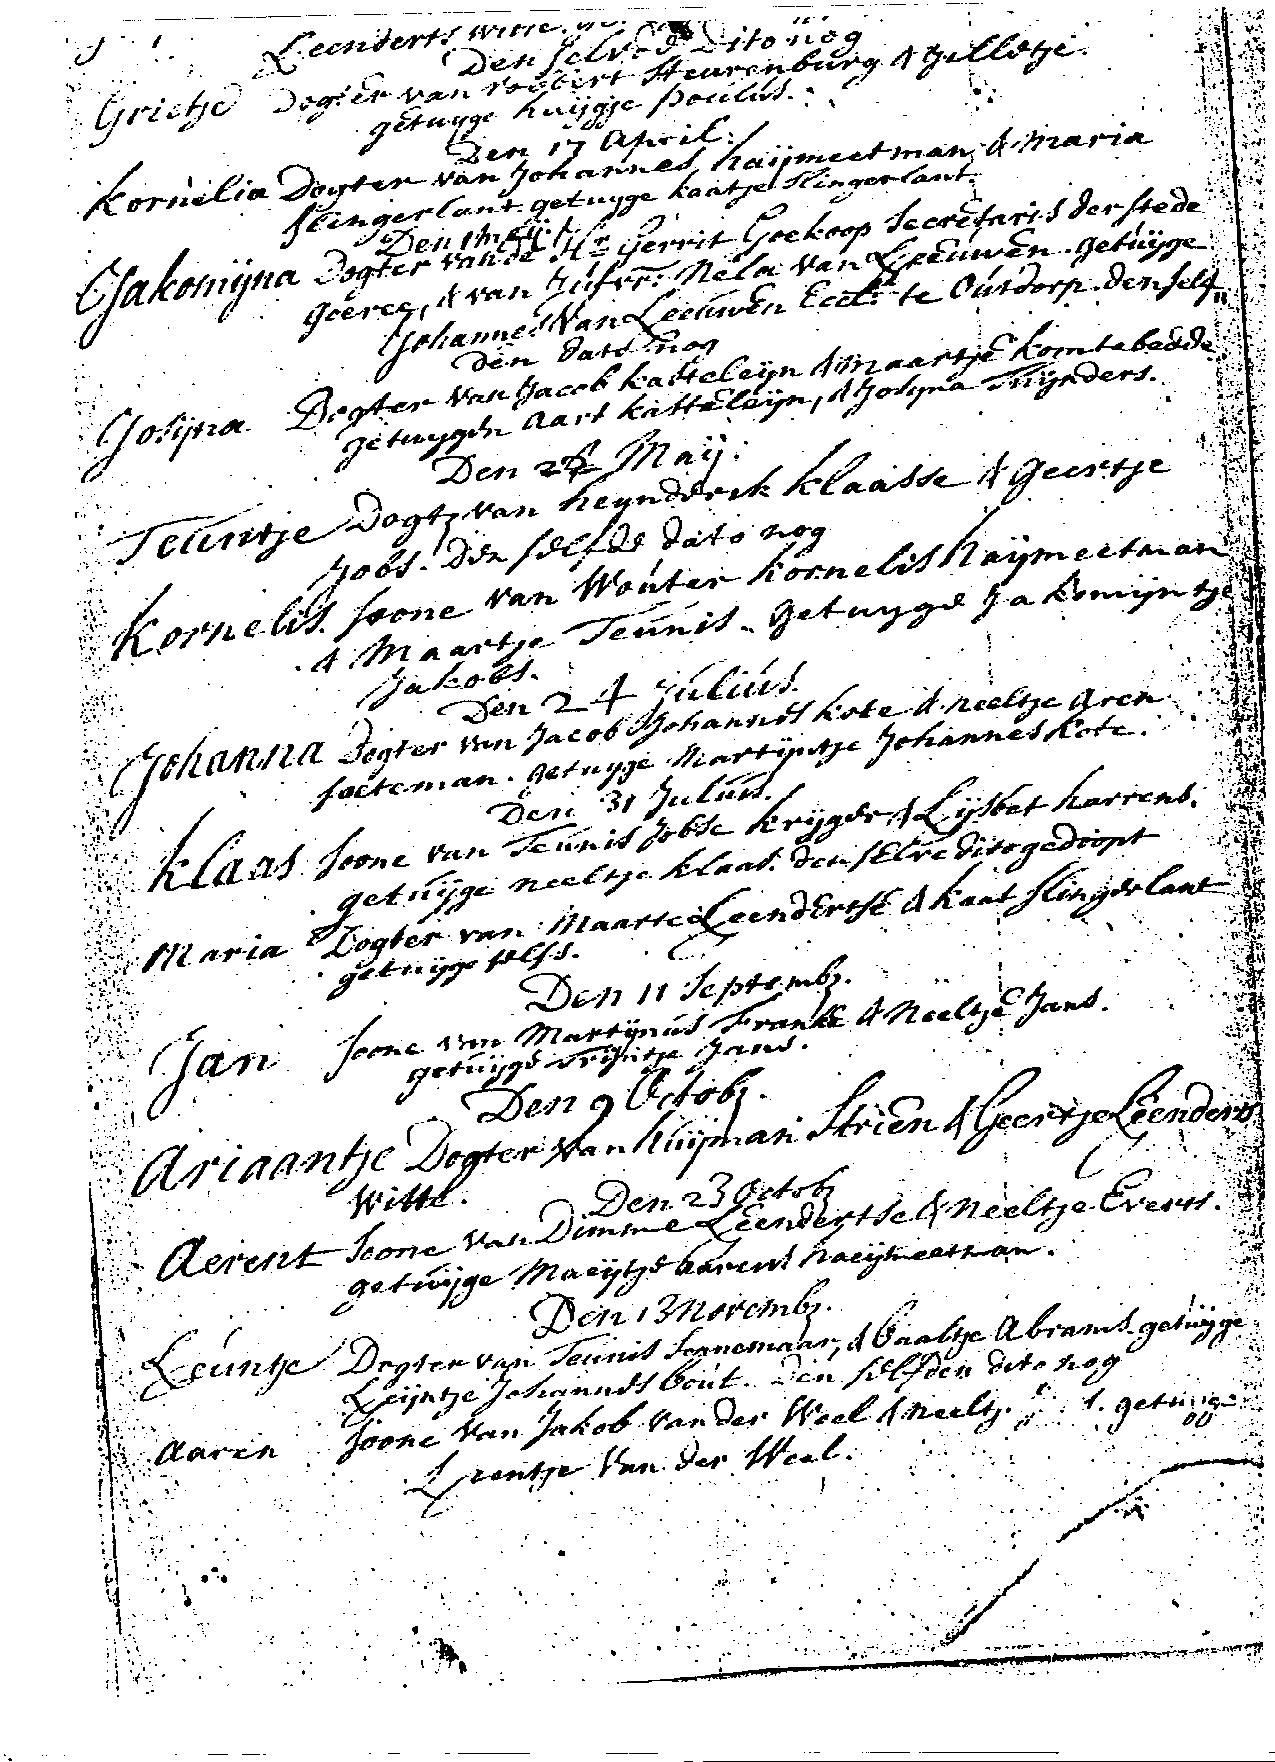 Leenderts Witte
Den selve dito nog
Grietje Dogter van robbert Steurenburg & Jilletje.
getuyge huijgje poulus.
Den 17 April.
Kornelia Dogter van Johannes haijmeetman & Maria
slingerlant getuyge kaatje slingerlant.
Den
Jsakomijna Dogter van de Hr. Gerrit Goekoop Secretaris der stede
goeree, & van Jufvr. Nela van Leeuwen. getuijge
Johannes Van Leeuwen Eccl. te Outdorp. den self„
den dato nog
Josijna Dogter van Jacob kasteleijn & maartje komtebedde
getuygen aart kasteleijn, & Josijna Tuijnders.
Den 24 Maij.
Teuntje Dogtr van heynderik klaasse & Geertje
Jobs. Den selfde dato nog
Kornelis soone van Wouter kornelis haijmeetman
& Maartje Teunis. Getuyge Jakomijntje
Jakobs.
Den 24 Julius.
Johanna Dogter van Jacob Johannes kote & neeltje aren
soeteman. getuyge Martijntje Johannes kote.
Den 31 Julius.
Klaas soone van Teunis Jobse krijger & Lijsbet harrens.
getuijge neeltje klaas. den selve dito gedoopt
Maria Dogter van Maarte Leendertse & kaat slingerlant
getuijge selfs.
Den 11 Septembr.
Jan soone van Martijnus Franke & Neeltje Jans.
getuijge Trijntje Jans.
Den 9 Octobr.
Ariaantje Dogter van huijman Strien & Geertje Leenderts
Witte. Den 23 Octobr
Aerent soone van Dimme Leendertse & Neeltje Everts.
getuijge Maeijtje barens haeijmeetman.
Den 13 Novembr.
Leuntje Dogter van Teunis sonnemaar, & baaltje Abrams. getuijge
Leijntje Johannes bout. den selfden dito nog
Aaren soone van Jakob van der Weel & Neeltj. getuijge
Leentje Van der Weel.